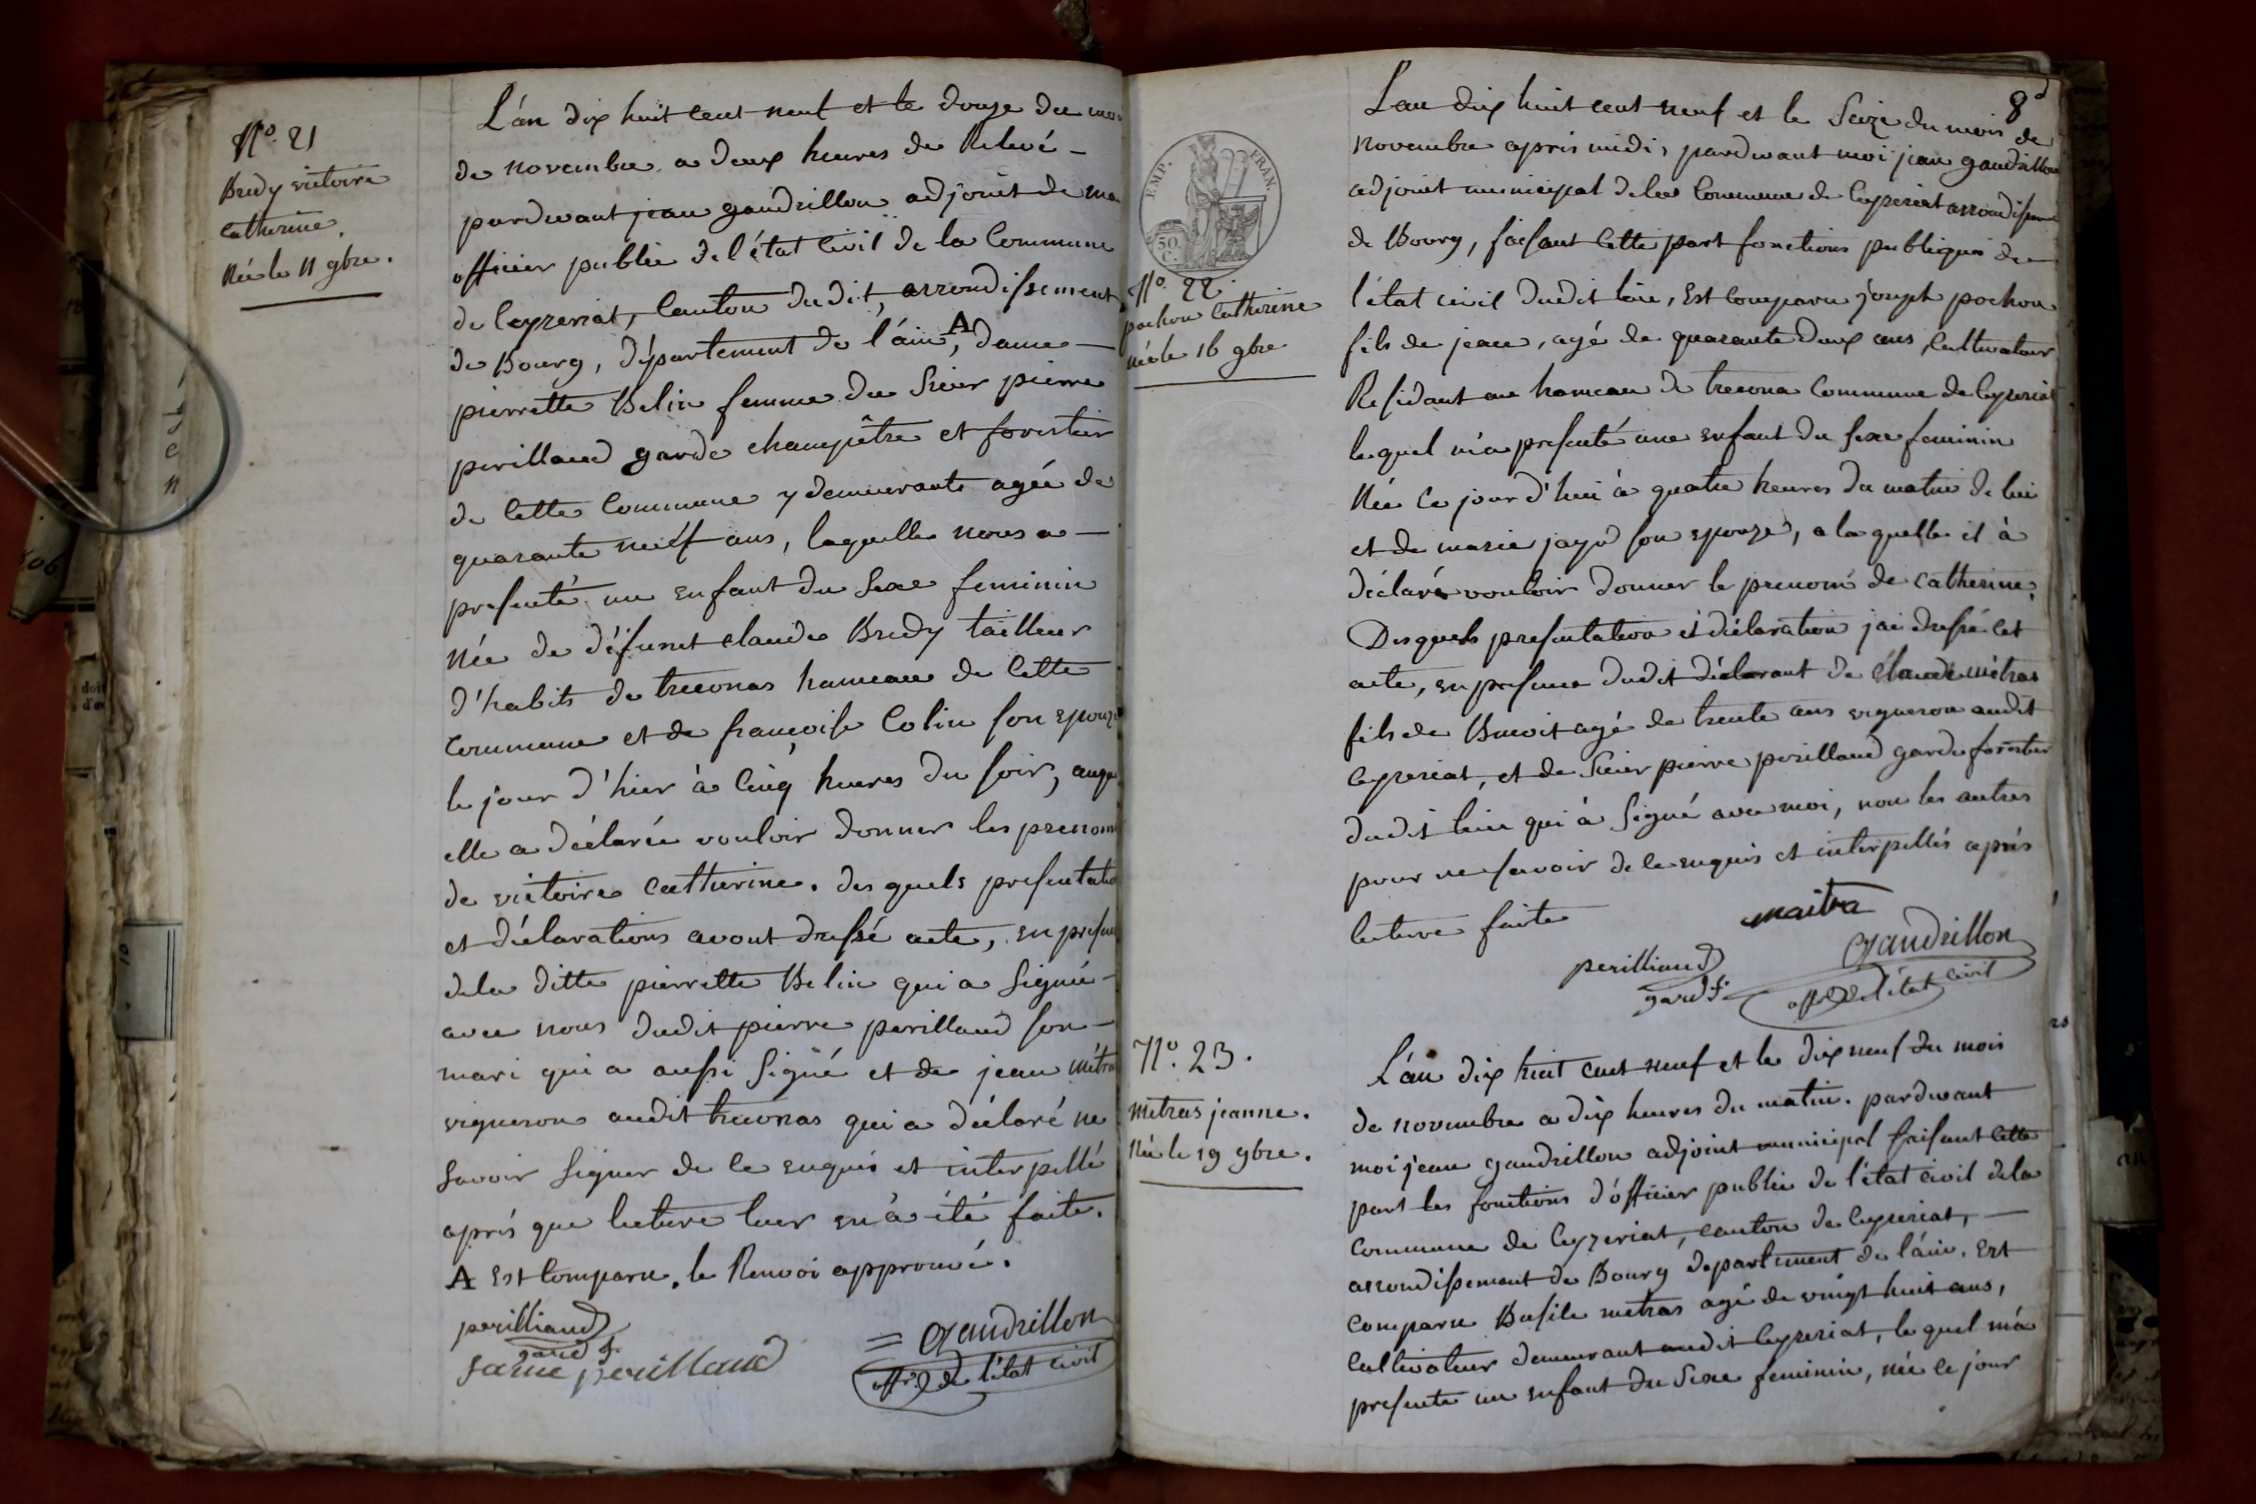 N.º 21
Bredy victoire
catherine.
Née le 11 9bre.
L'án dix huit cent neuf et le douze du moi
de novembre a deux heures de Relevé -
pardevant jean gaudrillon adjoint de ma
officier public de l'état Civil de la Commune
de Ceyzeriat, Canton dudit, arrondissement
de Bourg, département de l'áin, A dame -
pierrette Belin femme du Sieur pierre
perillaud garde champêtre et forestier
de cette Commune y demeurante agée de
quarante neuf ans, laquelle nous a -
presenté un enfant du Sexe feminin
Née de défunt claude Bredy tailleur
d'habits de treconas hameau de cette
Commune et de françoise Colin son epouze
le jour d'hier à cinq heures du soir, auqu
elle a déclarée vouloir donner les prenom
de victoire catherine. des quels presentatio
et déclarations avont dressé acte, en presen
dela ditte pierrette Belin qui a signée -
avec nous dudit pierre perillaud son -
mari qui a aussi signé et de jean métra
vigneron audit treconas qui a déclaré ne
savoir signer de ce enquis et interpellé
aprés que lecture leur en à été faite.
A Est Comparu. le Renvoi approuvé.
perilliaud
gard f.
perillaud
= Gaudrillon
offr de l'état civil
8
EMP. FRAN.
50 C.
N.º 22.
pochon Catherine
née le 16 9bre
L'an dix huit cent neuf et le seize du mois de
novembre aprés midi, pardevant moi jean gaudrillon
adjoint municipal dela Commune de Ceyzeriat arrondissem
de Bourg, faisant cette part fonctions publiques de
l'état civil dudit lieu, Est Comparu joseph pochon
fils de jean, agé de quarante deux ans, Cultivateur
Residant au hameau de trecona Commune de Ceyzeriat
lequel m'a presenté une enfant du sexe feminin
Née ce jour d'hui à quatre heures du matin de lui
et de marie jayr son epouze, a la quelle il à
déclaré vouloir donner le prenom de catherine.
Desquels presentation et déclaration jai dressé cet
acte, en presence dudit déclarant de claude métras
fils de Benoit agé de trente ans vigneron audit
Ceyzeriat, et de Sieur pierre perillaud garde forestier
dudit lieu qui à signé avec moi, non les autres
pour ne savoir de ce enquis et interpellés aprés
lecture faite
maitra
perilliaud
gard f.
Gaudrillon
offr de l'état civil
N.º 23.
métras jeanne.
Née le 19 9bre.
L'án dix huit cent neuf et le dix neuf du mois
de novembre a dix heures du matin. pardevant
moi jean gaudrillon adjoint municipal faisant cette
part les fonctions d'officier public de l'état civil dela
Commune de Ceyzeriat, canton de Ceyzeriat, -
arrondissement de Bourg departement de l'áin. Est
Comparu Basile metras agé de vingt huit ans,
Cultivateur demeurant audit Ceyzeriat, le quel m'à
presenté un enfant du Sexe féminin, née ce jour